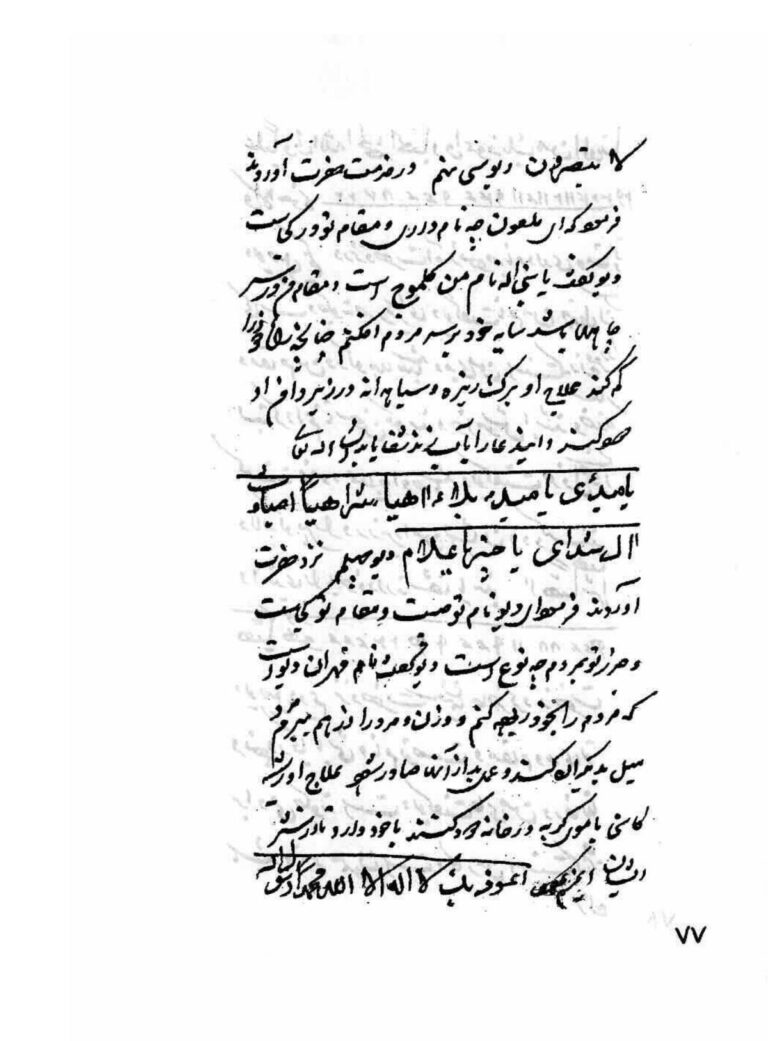 لا یبصرون دیو سی نهم در خدمت حضرت آوردند
فرمود که ای ملعون چه نام داری و مقام تو در کجاست
دیو گفت یا نبی اله نام من کلموج است و مقام من در سر
چاه ها باشد سایه خود بر سر مردم افکنم چنانچه
که کنند علاج او برگ و سیاه دانه در زیر دامن او
کنند و این دعا را با آب زند شفا یابد انشا اله تعالی
یا یا اهیا شراهیا اصباوت
ال شدای یا دیو چهلم نزد حضرت
آوردند فرمود ای دیو نام تو چیست و مقام تو کجاست
و ضرر تو بمردم چه نوع است دیو گفت نام قهران دیو است
که مردم را رنجه کنم و زن و مرد را از هم
میل بدیگران کنند و عمل بد از آنها صادر شود علاج او ریشه
کاسنی با موی گربه در خانه دود کنند با خود دارد
این لا اله الا الله محمد رسول الله
۷۷